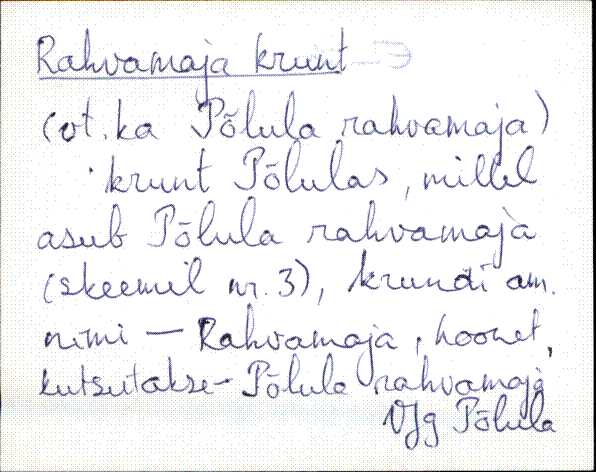 Rahvamaja krunt
(vt. ka Põlula rahvamaja)
krunt Põlulas, millel
asub Põlula rahvamaja
(skeemil nr. 3), krundi am.
nimi — Rahvamaja, hoonet,
kutsutakse - Põlula rahvamaja
VJg Põlula